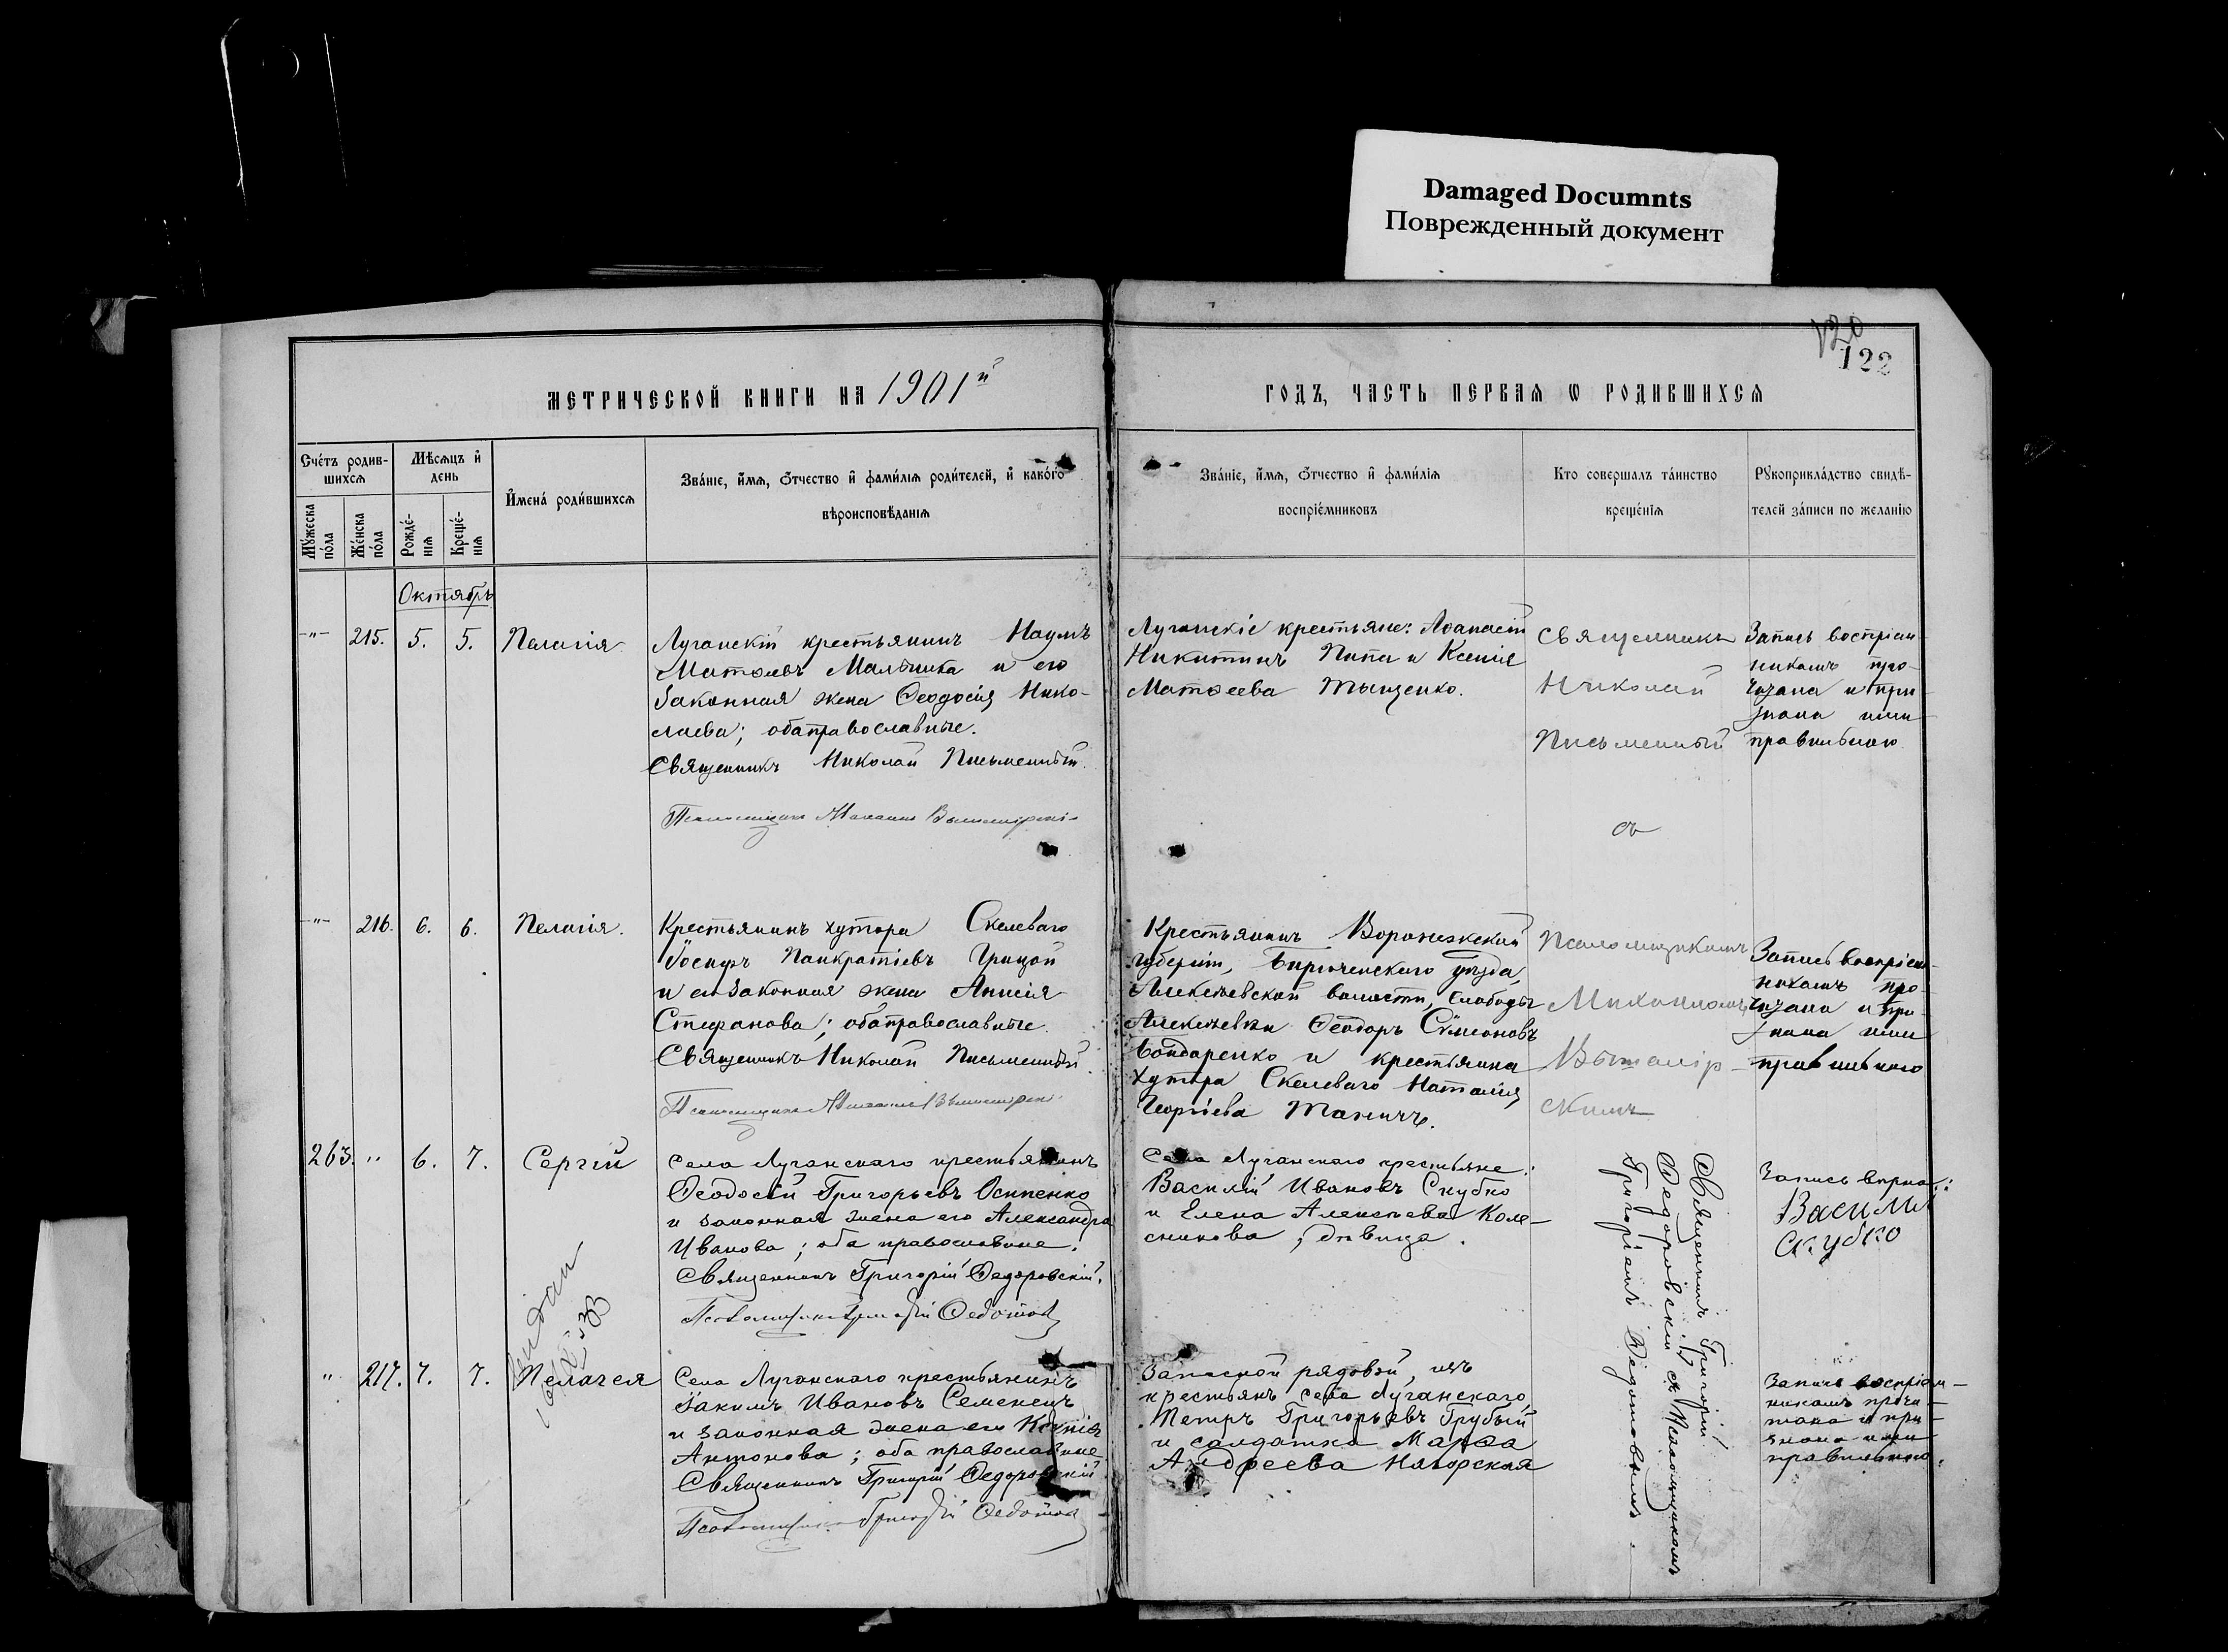 Damaged Documnts
Поврежденный документ
120
122
МЕТРИЧЕСКОЙ КНИГИ НА 1901й
ГОДЪ, ЧАСТЬ ПЕРВАЯ Ѡ РОДИВШИХСЯ
Счетъ родив-
шихся
Мѣсяцъ и
день
Мужеска
пола
Женска
пола
Рожде-
нія
Креще-
нія
Имена родившихся
Званіе, имя, отчество и фамилія родителей, и какого
вѣроисповѣданія
Званіе, имя, отчество и фамилія
воспріемниковъ
Кто совершалъ таинство
крещенія
Рукоприкладство свидѣ-
телей записи по желанію
Октябрь
-"- 215. 5. 5. Пелагія
Луганскій крестьянинъ Наумъ
Матѳеевъ и его
Законная жена Ѳеодосія Нико-
лаева; оба православные.
Священникъ Николай Письменный.
Псаломщикъ
Луганскіе крестьяне: Аѳанасій
Никитинъ Пипа и Ксенія
Матѳеева Тыщенко.
Священникъ
Николай
Письменный
съ
Запись воспріем-
никамъ про-
читана и при-
знана ими
правильною
-"- 216. 6. 6. Пелагія.
Крестьянинъ хутора Скелеваго
Іосифъ Панкратіевъ Грицай
и его законная жена Анисія
Стефанова; оба православные.
Священникъ Николай Письменный.
Псаломщикъ
Крестьянинъ Воронежской
губерніи, Бирюченскаго уѣзда,
Алексѣевской волости, слободы
Алексѣевки Ѳеодоръ Сѵмеоновъ
Бондаренко и крестьянка
хутора Скелеваго Наталія
Георгіева Таничъ.
Псаломщикомъ
Михаиломъ
скимъ
Запись воспріем-
никамъ про-
читана и при-
знана ими
правильною
263. " 6. 7. Сергій
Села Луганскаго крестьянинъ
Ѳеодосій Григорьевъ Осипенко
и законная жена его Александра
Иванова; оба православные.
Священникъ Григорій Ѳедоровскій.
Псаломщикъ Григорій Ѳедотовъ
Села Луганскаго крестьяне:
Василій Ивановъ Скубко
и Елена Алексѣева Коле-
сникова, дѣвица.
Священникъ Григорій
Ѳедоровскій съ Псаломщикомъ
Григоріемъ Ѳедотовымъ.
Запись вѣрна:
Василій
Скубко
" 217. 7. 7. Пелагея
Села Луганскаго крестьянинъ
Іакимъ Ивановъ Семенецъ
и законная жена его Ксенія
Антонова; оба православные
Священникъ Григорій Ѳедоровскій
Псаломщикъ Григорій Ѳедотовъ
Запасной рядовой, изъ
крестьянъ села Луганскаго,
Петръ Григорьевъ Грубый
и солдатка Марѳа
Андреева Нагорская
Запись воспріем-
никамъ прочи-
тана и при-
знана ими
правильною.